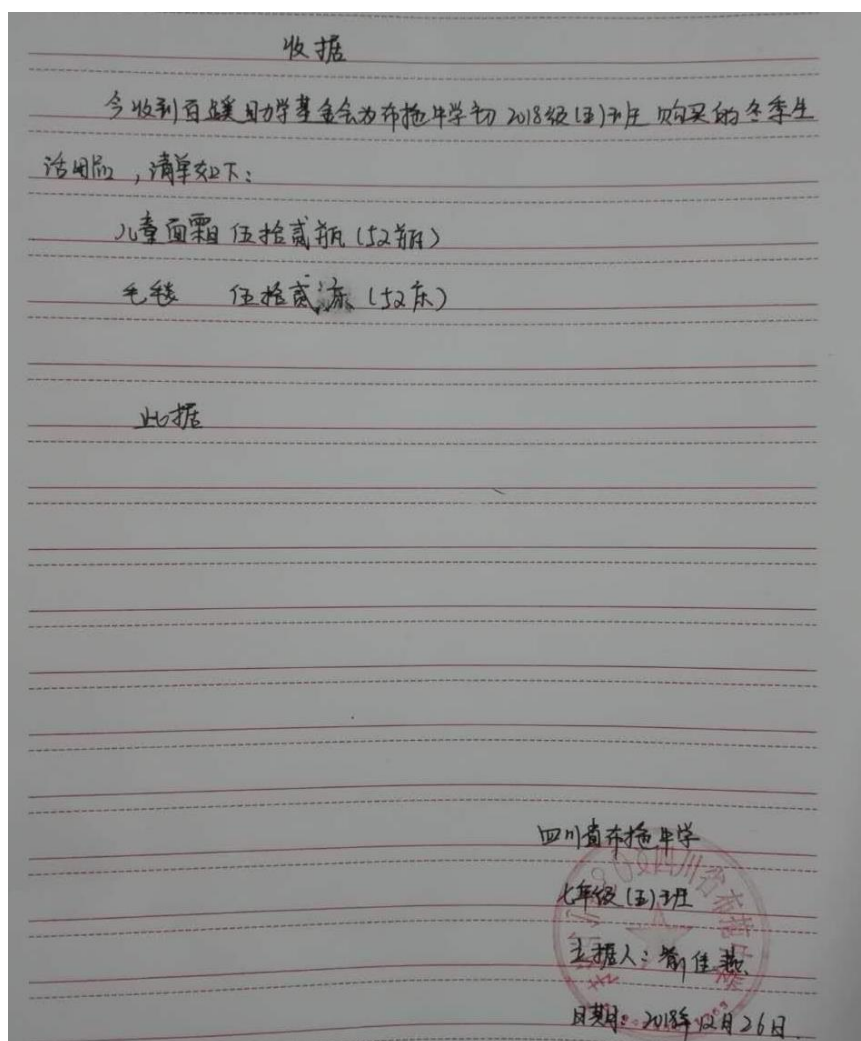 收据
今收到百援助学基金会为布拖中学初2018级(五)班购买的冬季生
活用品，清单如下：
儿童面霜 伍拾贰瓶（52瓶）
毛毯 伍拾贰床（52床）
此据
四川省布拖中学
七年级（五）班
立据人：喻佳燕
日期：2018年12月26日
四川省布拖中学